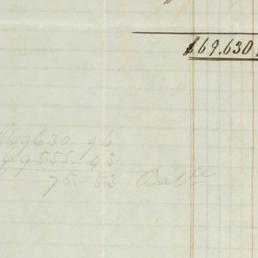 $69.630
69630-96
69555-43
75-53 Balce